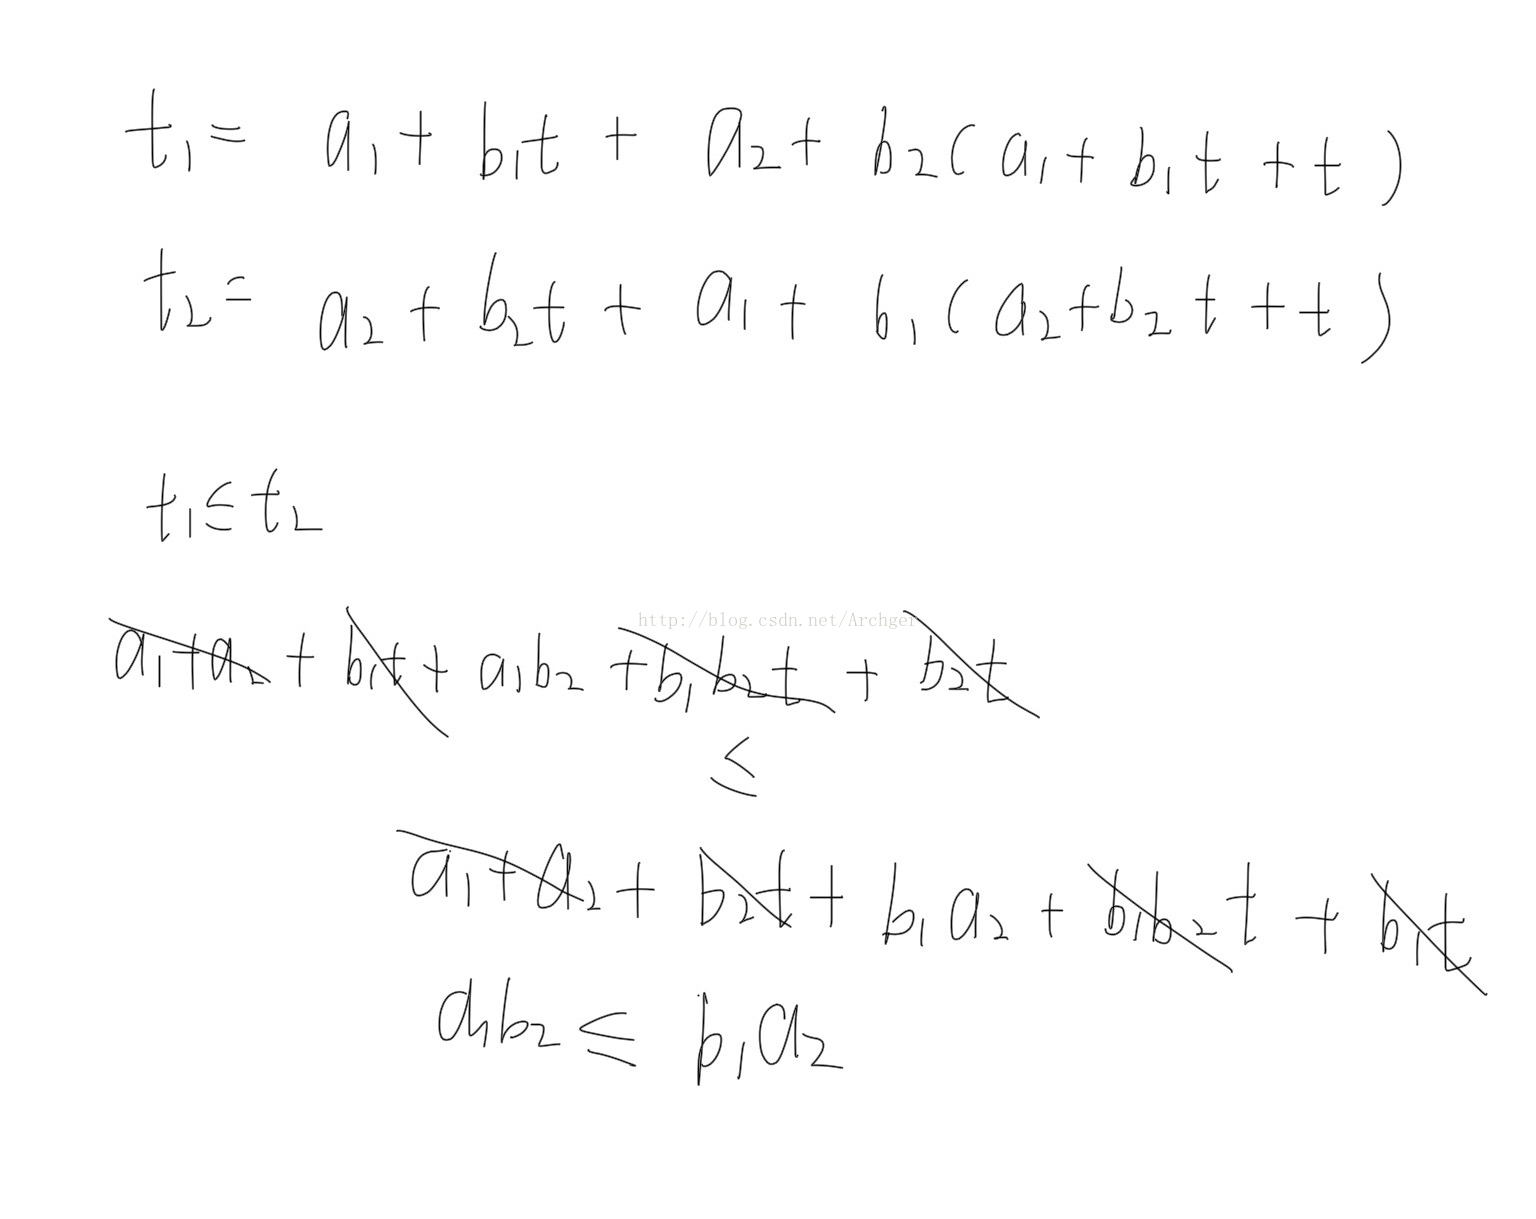 t₁ = a₁ + b₁t + a₂ + b₂(a₁ + b₁t + t)
t₂ = a₂ + b₂t + a₁ + b₁(a₂ + b₂t + t)
t₁ ≤ t₂
http://blog.csdn.net/Archger
a₁ + a₂ + b₁t + a₁b₂ + b₁b₂t + b₂t
≤
a₁ + a₂ + b₂t + b₁a₂ + b₁b₂t + b₁t
a₁b₂ ≤ b₁a₂